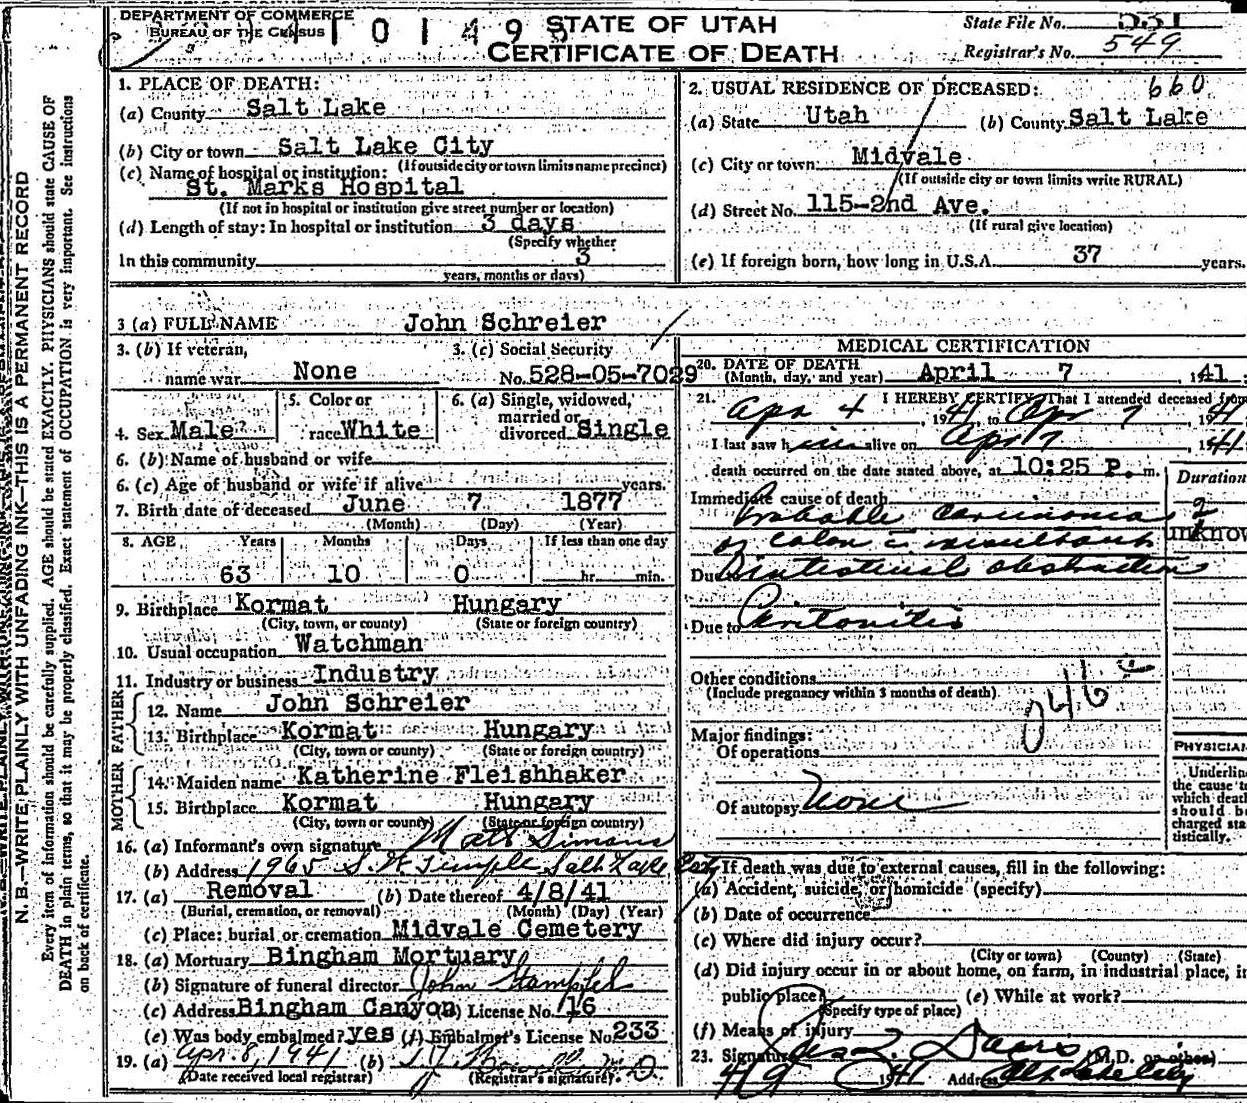 DEPARTMENT OF COMMERCE
BUREAU OF THE CENSUS
STATE OF UTAH
CERTIFICATE OF DEATH
State File No. 531
Registrar's No. 549
N. B.—WRITE PLAINLY WITH UNFADING INK—THIS IS A PERMANENT RECORD
Every item of information should be carefully supplied. AGE should be stated EXACTLY. PHYSICIANS should state CAUSE OF
DEATH in plain terms, so that it may be properly classified. Exact statement of OCCUPATION is very important. See instructions
on back of certificate.
1. PLACE OF DEATH:
(a) County Salt Lake
(b) City or town Salt Lake City
(If outside city or town limits name precinct)
(c) Name of hospital or institution:
St. Marks Hospital
(If not in hospital or institution give street number or location)
(d) Length of stay: In hospital or institution 3 days
(Specify whether
In this community 3
years, months or days)
2. USUAL RESIDENCE OF DECEASED: 660
(a) State Utah (b) County Salt Lake
(c) City or town: Midvale
(If outside city or town limits write RURAL)
(d) Street No. 115-2nd Ave.
(If rural give location)
(e) If foreign born, how long in U.S.A. 37 years.
3 (a) FULL NAME John Schreier
3. (b) If veteran, name war None
3. (c) Social Security No. 528-05-7029
4. Sex Male
5. Color or race White
6. (a) Single, widowed, married or divorced Single
6. (b) Name of husband or wife
6. (c) Age of husband or wife if alive years.
7. Birth date of deceased June 7 1877
(Month) (Day) (Year)
8. AGE Years Months Days If less than one day
63 10 0 hr. min.
9. Birthplace Kormat Hungary
(City, town, or county) (State or foreign country)
10. Usual occupation Watchman
11. Industry or business Industry
FATHER
12. Name John Schreier
13. Birthplace Kormat Hungary
(City, town or county) (State or foreign country)
MOTHER
14. Maiden name Katherine Fleishhaker
15. Birthplace Kormat Hungary
(City, town or county) (State or foreign country)
16. (a) Informant's own signature Matt Simons
(b) Address 1965 S. W. Temple Salt Lake City
17. (a) Removal (b) Date thereof 4/8/41
(Burial, cremation, or removal) (Month) (Day) (Year)
(c) Place: burial or cremation Midvale Cemetery
18. (a) Mortuary Bingham Mortuary
(b) Signature of funeral director John Stampfel
(c) Address Bingham Canyon (d) License No. 16
(e) Was body embalmed? yes (f) Embalmer's License No. 233
19. (a) Apr. 8, 1941 (b) M.D.
(Date received local registrar) (Registrar's signature)
MEDICAL CERTIFICATION
20. DATE OF DEATH
(Month, day, and year) April 7, 1941
21. I HEREBY CERTIFY, That I attended deceased from
Apr 4, 1941, to Apr 7, 1941
I last saw him alive on Apr 7 1941
death occurred on the date stated above, at 10:25 P. m.
Duration
Immediate cause of death
Probable Carcinoma ?
of colon c resultant unknow
Due to intestinal obstruction
Due to Peritonitis
Other conditions
(Include pregnancy within 3 months of death)
046
Major findings:
Of operations
Of autopsy None
PHYSICIAN
Underline
the cause to
which death
should be
charged sta
tistically.
22. If death was due to external causes, fill in the following:
(a) Accident, suicide, or homicide (specify)
(b) Date of occurrence
(c) Where did injury occur?
(City or town) (County) (State)
(d) Did injury occur in or about home, on farm, in industrial place, in
public place? (e) While at work?
(Specify type of place)
(f) Means of injury
23. Signature (M.D. or other)
4/9 1941 Address Salt Lake City